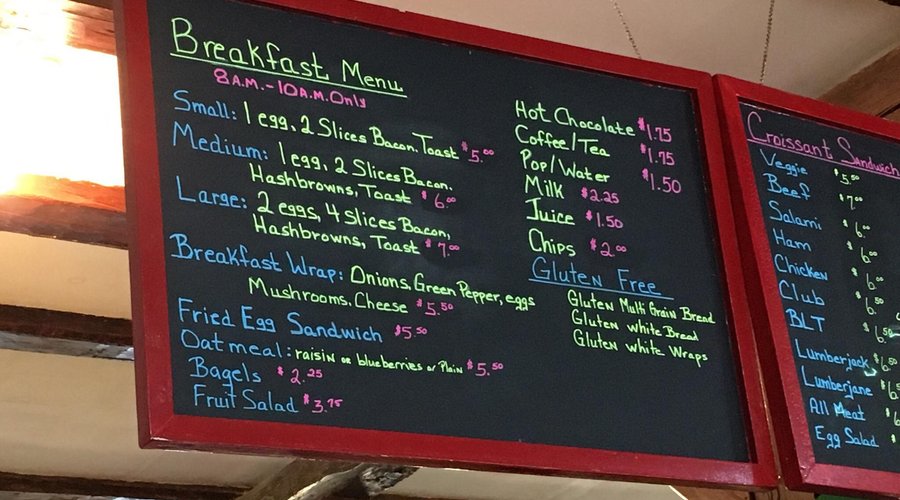 Breakfast Menu
8 A.M. - 10 A.M. Only
Small: 1 egg, 2 Slices Bacon, Toast $5.00
Medium: 1 egg, 2 Slices Bacon,
Hashbrowns, Toast $6.00
Large: 2 eggs, 4 slices Bacon,
Hashbrowns, Toast $7.00
Breakfast Wrap: Onions, Green Pepper, eggs
Mushrooms, Cheese $5.50
Fried Egg Sandwich $5.50
Oatmeal: raisin or blueberries or Plain $5.50
Bagels $2.25
Fruit Salad $3.75
Hot Chocolate $1.75
Coffee/Tea $1.75
Pop/Water $1.50
Milk $2.25
Juice $1.50
Chips $2.00
Gluten Free
Gluten Multi Grain Bread
Gluten white Bread
Gluten white Wraps
Croissant Sandwich
Veggie $5.50
Beef $7.00
Salami $6.00
Ham $6.00
Chicken $6.00
Club $6.50
BLT $6.50
Lumberjack $6.50
Lumberjane
All Meat
Egg Salad